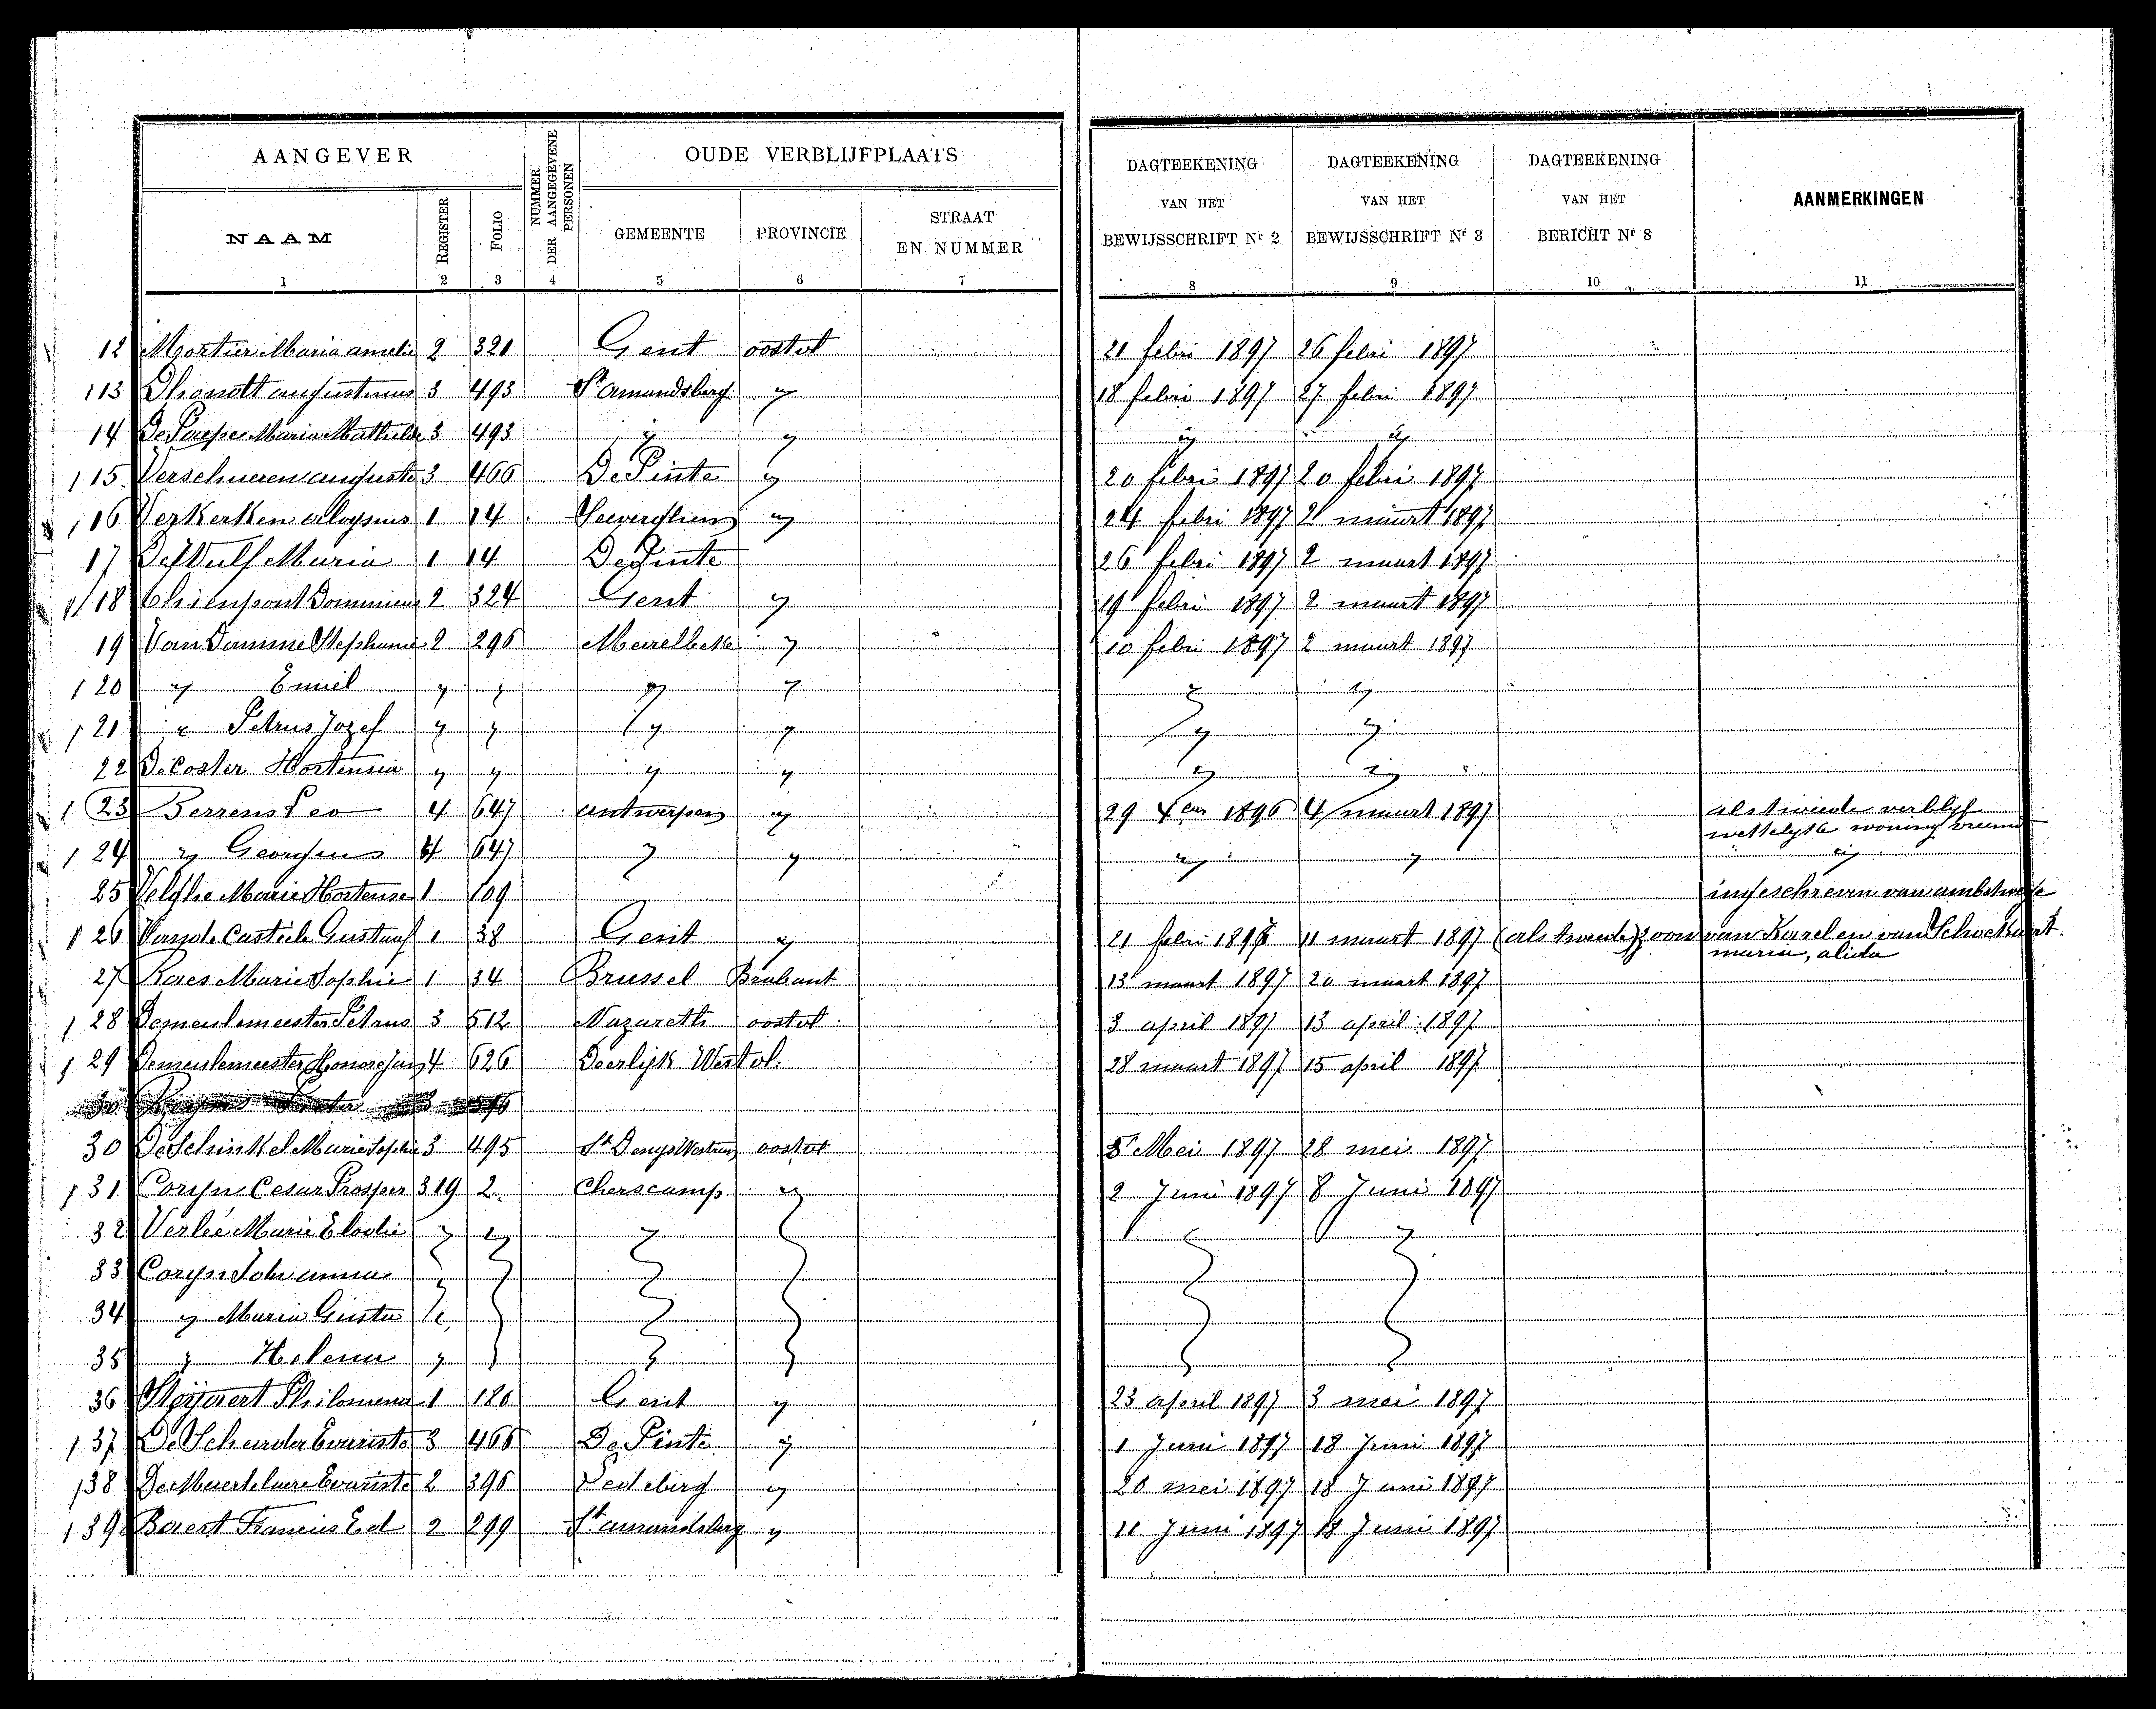 AANGEVER
NUMMER DER AANGEGEVENE PERSONEN
OUDE VERBLIJFPLAATS
DAGTEEKENING VAN HET BEWIJSSCHRIFT Nr 2
DAGTEEKENING VAN HET BEWIJSSCHRIFT Nr 3
DAGTEEKENING VAN HET BERICHT Nr 8
AANMERKINGEN
NAAM REGISTER FOLIO GEMEENTE PROVINCIE STRAAT EN NUMMER
1 2 3 4 5 6 7 8 9 10 11
12 Mortier Maria amelie 2 321 Gent oostvl 21 febri 1897 26 febri 1897
13 Dhondt augustinus 3 493 St amandsberg " 18 febri 1897 27 febri 1897
14 De Paepe Maria Mathilde 3 493 " " " "
15 Verschueren auguste 3 466 De Pinte " 20 febri 1897 20 febri 1897
16 Verkerken aloysius 1 14 Seeverghem " 24 febri 1897 2 maart 1897
17 De Wulf Maria 1 14 De Pinte 26 febri 1897 2 maart 1897
18 Chienpont Dominicus 2 324 Gent " 19 febri 1897 2 maart 1897
19 Van Damme Stephanie 2 296 Meirelbeke " 10 febri 1897 2 maart 1897
20 " Emiel " " " " " "
21 " Petrus Jozef " " " " " "
22 De Coster Hortensia " " " " " "
23 Berrens Leo 4 647 antwerpen " 29 1896 4 maart 1897 als tweede verblyf
wettelyke woning
24 " Georgius 4 647 " " " " "
25 Velghe Marie Hortense 1 109 ingeschreven van ambtwege
26 Vande Casteele Gustaaf 1 38 Gent " 21 febri 1897 11 maart 1897 (als tweede) zoon van Karel en van Schockaert.
maria, alida
27 Raes Marie Sophie 1 34 Brussel Brabant 13 maart 1897 20 maart 1897
28 Demeulemeester Petrus 3 512 Nazareth oostvl. 3 april 1897 13 april 1897
29 Demeulemeester Honore Jan 4 626 Deerlijk Westvl. 28 maart 1897 15 april 1897
30 De Schinkel Marie Sophie 3 495 St Denys Westrem oostvl 5 Mei 1897 28 mei 1897
31 Coryn Cesar Prosper 319 2 Cherscamp " 2 Juni 1897 8 Juni 1897
32 Verlée Marie Elodie " " " " " "
33 Coryn Johanna "
34 " Maria Gusta "
35 " Helena "
36 Steÿaert Philomena 1 180 Gent " 23 april 1897 3 mei 1897
37 De Scheirder Evariste 3 466 De Pinte " 1 Juni 1897 18 Juni 1897
38 De Meerleere Evariste 2 396 Ledeberg " 20 mei 1897 18 Juni 1897
39 Baert Francies Ed 2 299 St amandsberg " 11 Juni 1897 18 Juni 1897